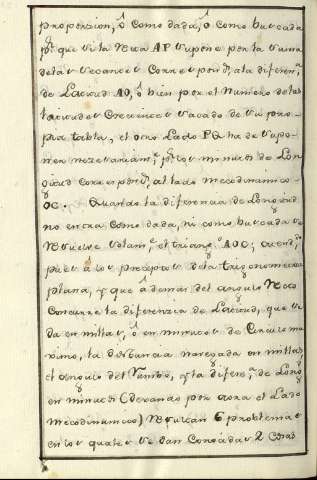 proporzion, ô como dada, ô como buscada
pr. que esta Reca AP supone por la suma
de las secantes Corresponds. a la diferena.
de Latitud AO, ô bien por el Numero de las
Latitudes Crecientes sacado de su pro-
pria tabla, el otro Lado PG ha de supo-
ner nezesariamte. pr. los minutos de Lon-
gitud correspondte. al lado mecodinamico
OC. Quando la diferencia de Longitud
no entra como dada, ni como buscada se
Resuelve solamte. el triangulo AOC; atendido
pues a los preceptos de la trigonometria
plana, y que ademas del angulo Recto
Concurre la diferencia de Latitud, que se
da en millas, ô en minutos de Circulo ma-
ximo, la distancia navegada en millas,
el angulo del Rumbo, y la diferena. de Long.
en minutos (dexando por aora el Lado
mecodinamico) Resultan 6 problemas
en los quales se dan Conozidas 2 Cosas